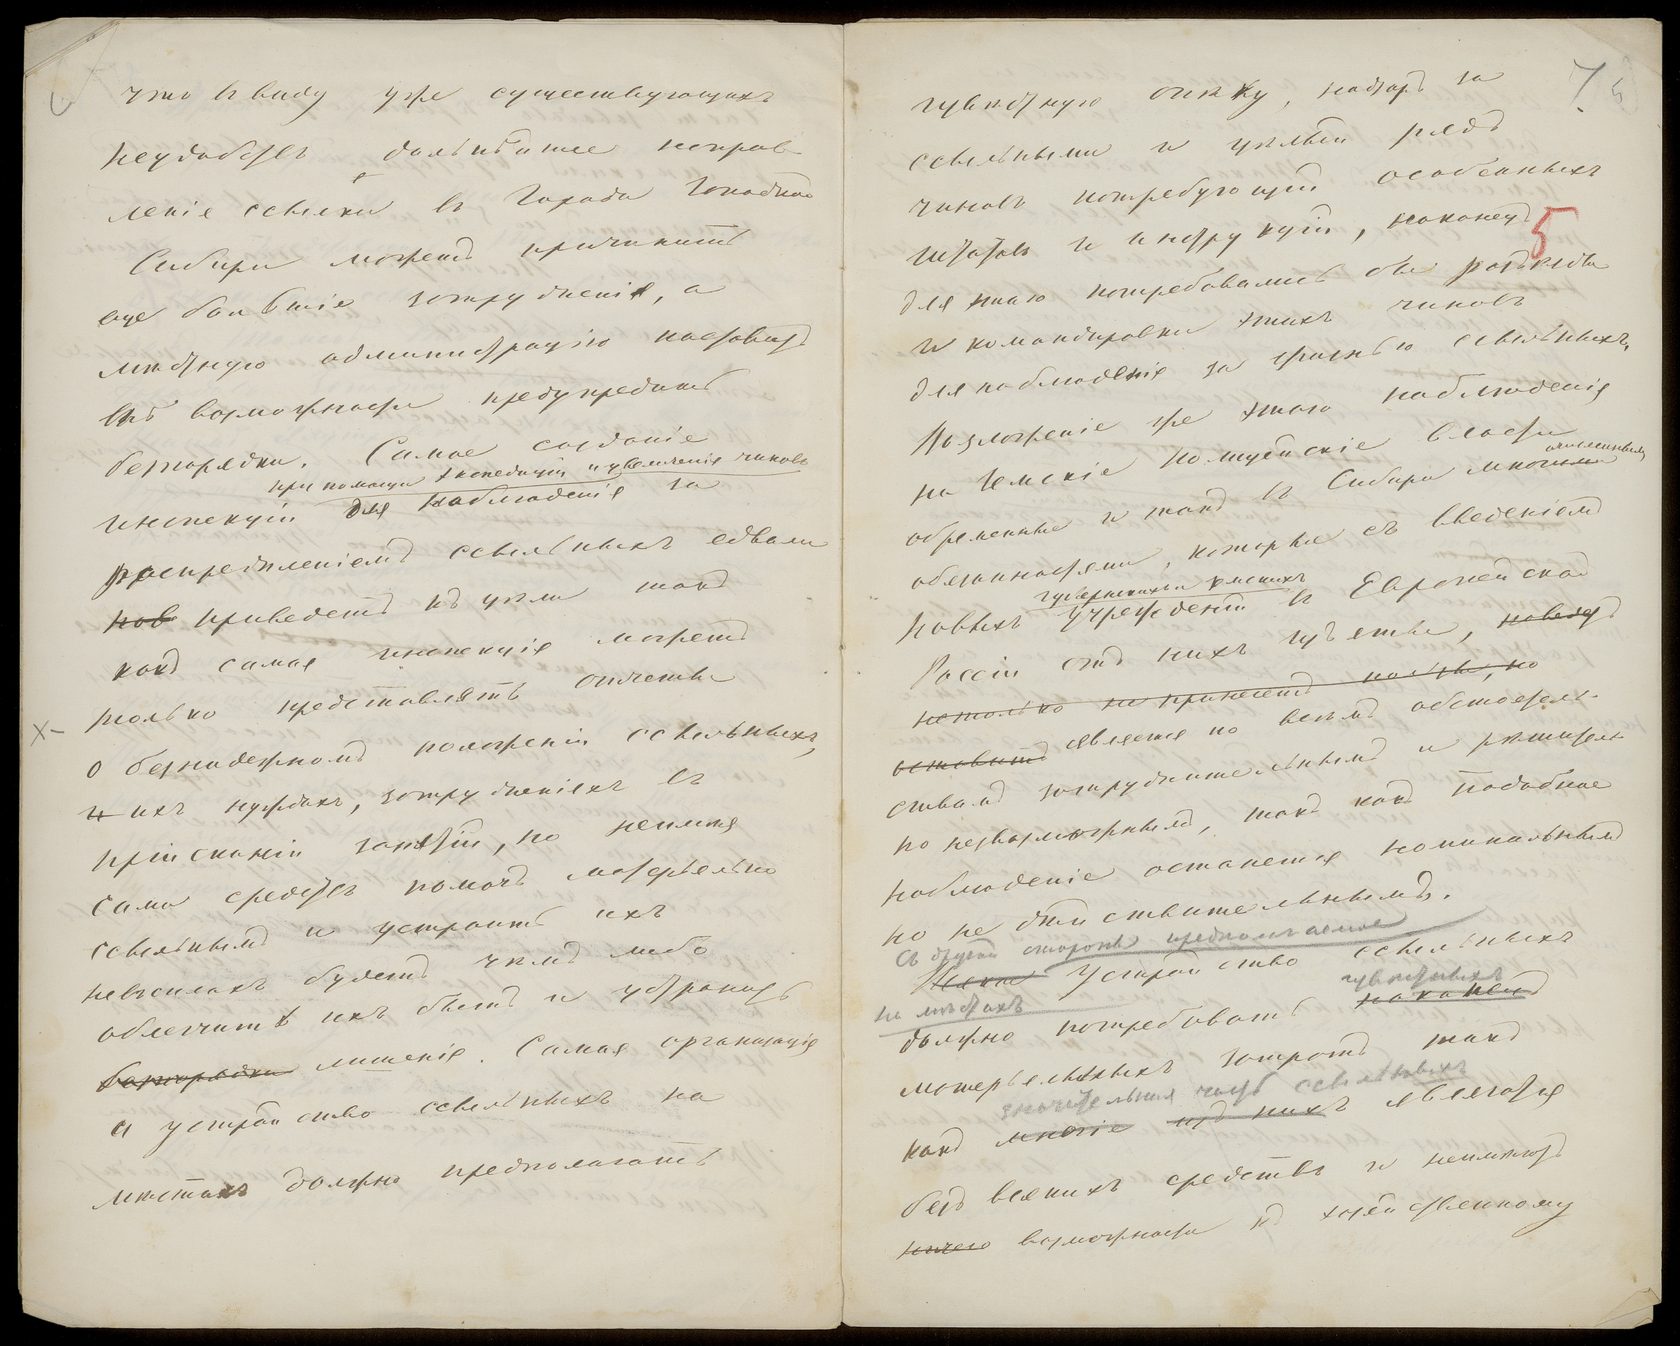 что въ виду уже существующихъ
неудобствъ дальнѣйшее направ-
леніе ссылки въ города Западной
Сибири можетъ причинить
еще большіе затрудненія, а
мѣстную администрацію поставитъ
внѣ возможности предупредить
безпорядки. Самое созданіе
при помощи экспедицій и увеличенія чиновъ
инспекціи для наблюденія за
распредѣленіемъ ссыльныхъ едвали
приведетъ къ цѣли такъ
какъ самая инспекція можетъ
только представлять отчеты
о безнадежномъ положеніи ссыльныхъ,
и ихъ нуждахъ, затрудненіяхъ въ
пріисканіи занятій, но неимѣя
сама средствъ помочь матерьяльно
ссыльнымъ и устроить ихъ
невъсилахъ будетъ чѣмъ либо
облегчить ихъ бытъ и устранить
безпорядки лишенія. Самая организація
и устройство ссыльныхъ на
мѣстахъ должно предполагать
7.
5
гувствную опеку, надзоръ за
ссыльными и цѣлый рядъ
чиновъ потребующій особенныхъ
штатовъ и инструкцій, наконецъ
для этаго потребовались бы разъѣзды
и командировки этихъ чиновъ
для наблюденія за жизнью ссыльныхъ.
Возложеніе же этаго наблюденія
на Земскіе полицейскіе власти
обременные и такъ въ Сибири многими
многочисленными
обязанностями, которые съ введеніемъ
губернскихъ земскихъ
новыхъ учрежденій въ Европейской
Россіи отъ нихъ изъяты,
нетолько не принесетъ пользы, но
является по всѣмъ обстоятель-
ствамъ затруднительнымъ и рѣшитель-
но невозможнымъ, такъ какъ подобное
наблюденіе останется номинальнымъ
но не дѣйствительнымъ.
Съ другой стороны предполагаемое
Устройство ссыльныхъ
на мѣстахъ
должно потребовать наконецъ
матерьяльныхъ затратъ такъ
значительная часть ссыльныхъ
какъ многіе изъ нихъ является
безъ всякихъ средствъ и неимѣютъ
ничего возможности къ хозяйственному